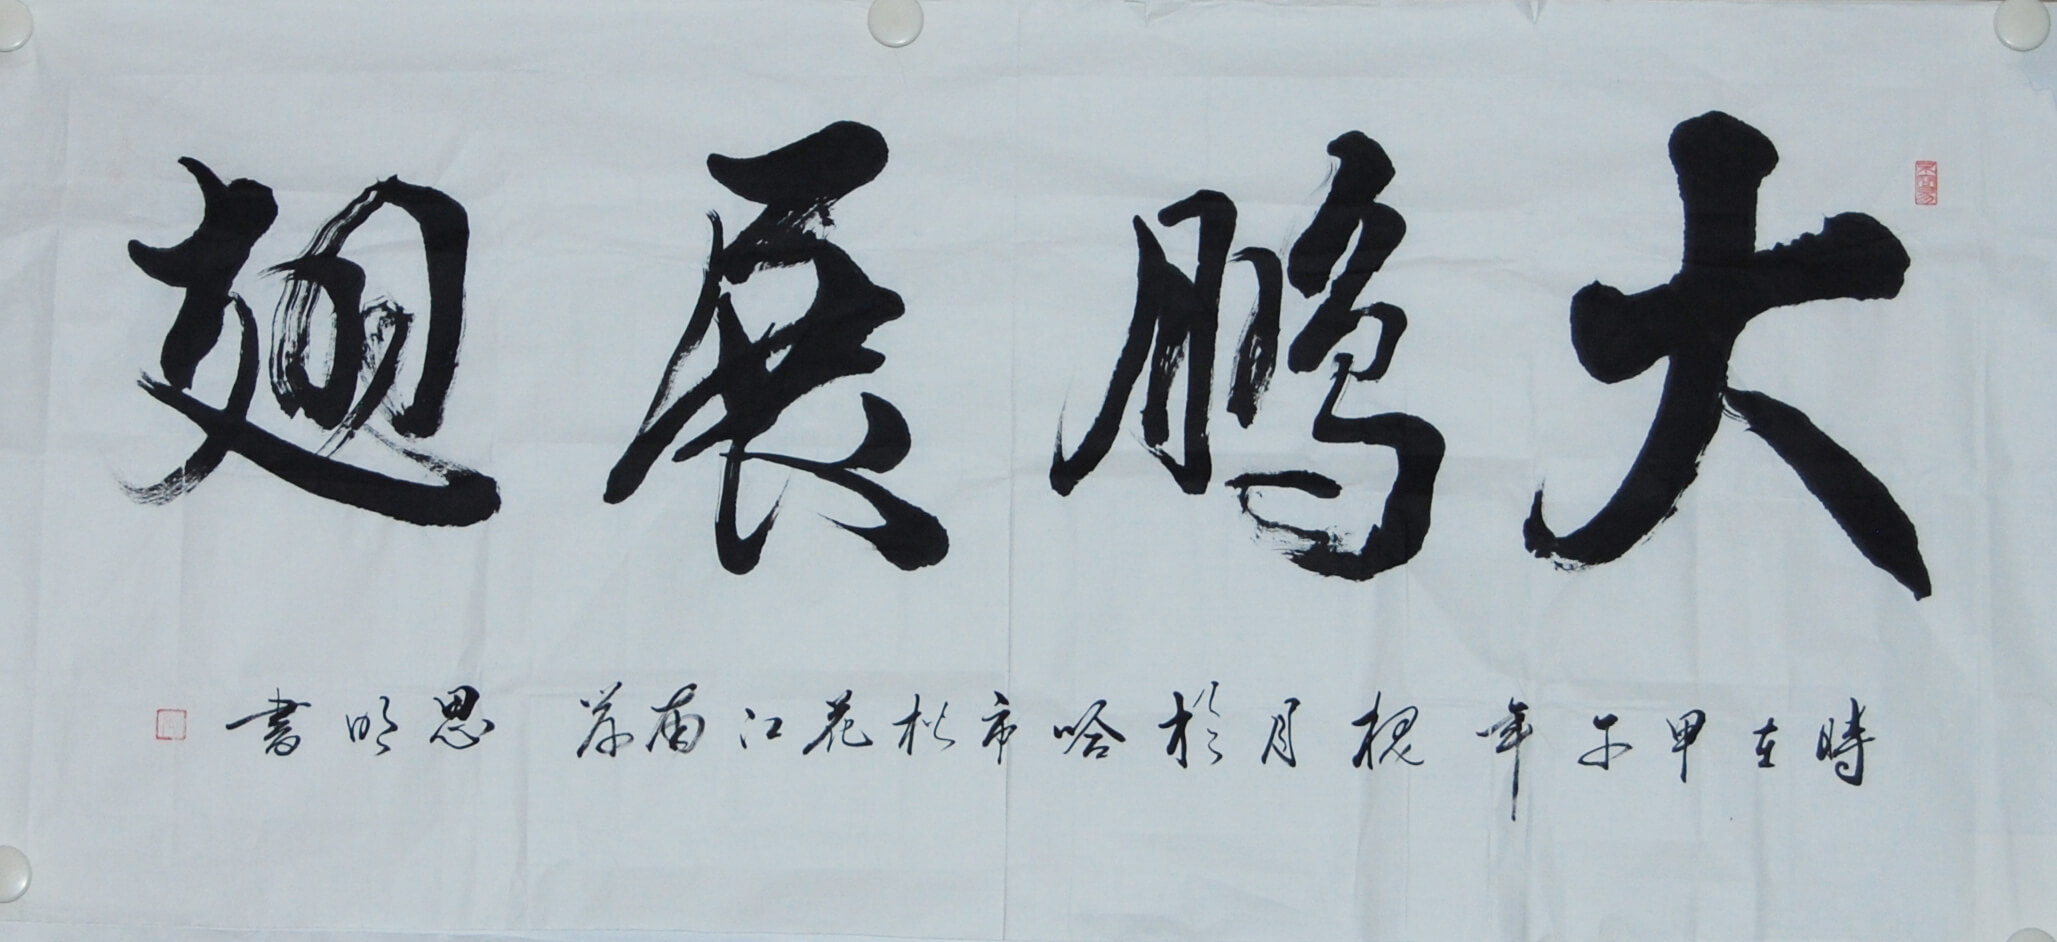 大鹏展翅
時在甲午年槐月於哈市松花江南岸 思明書